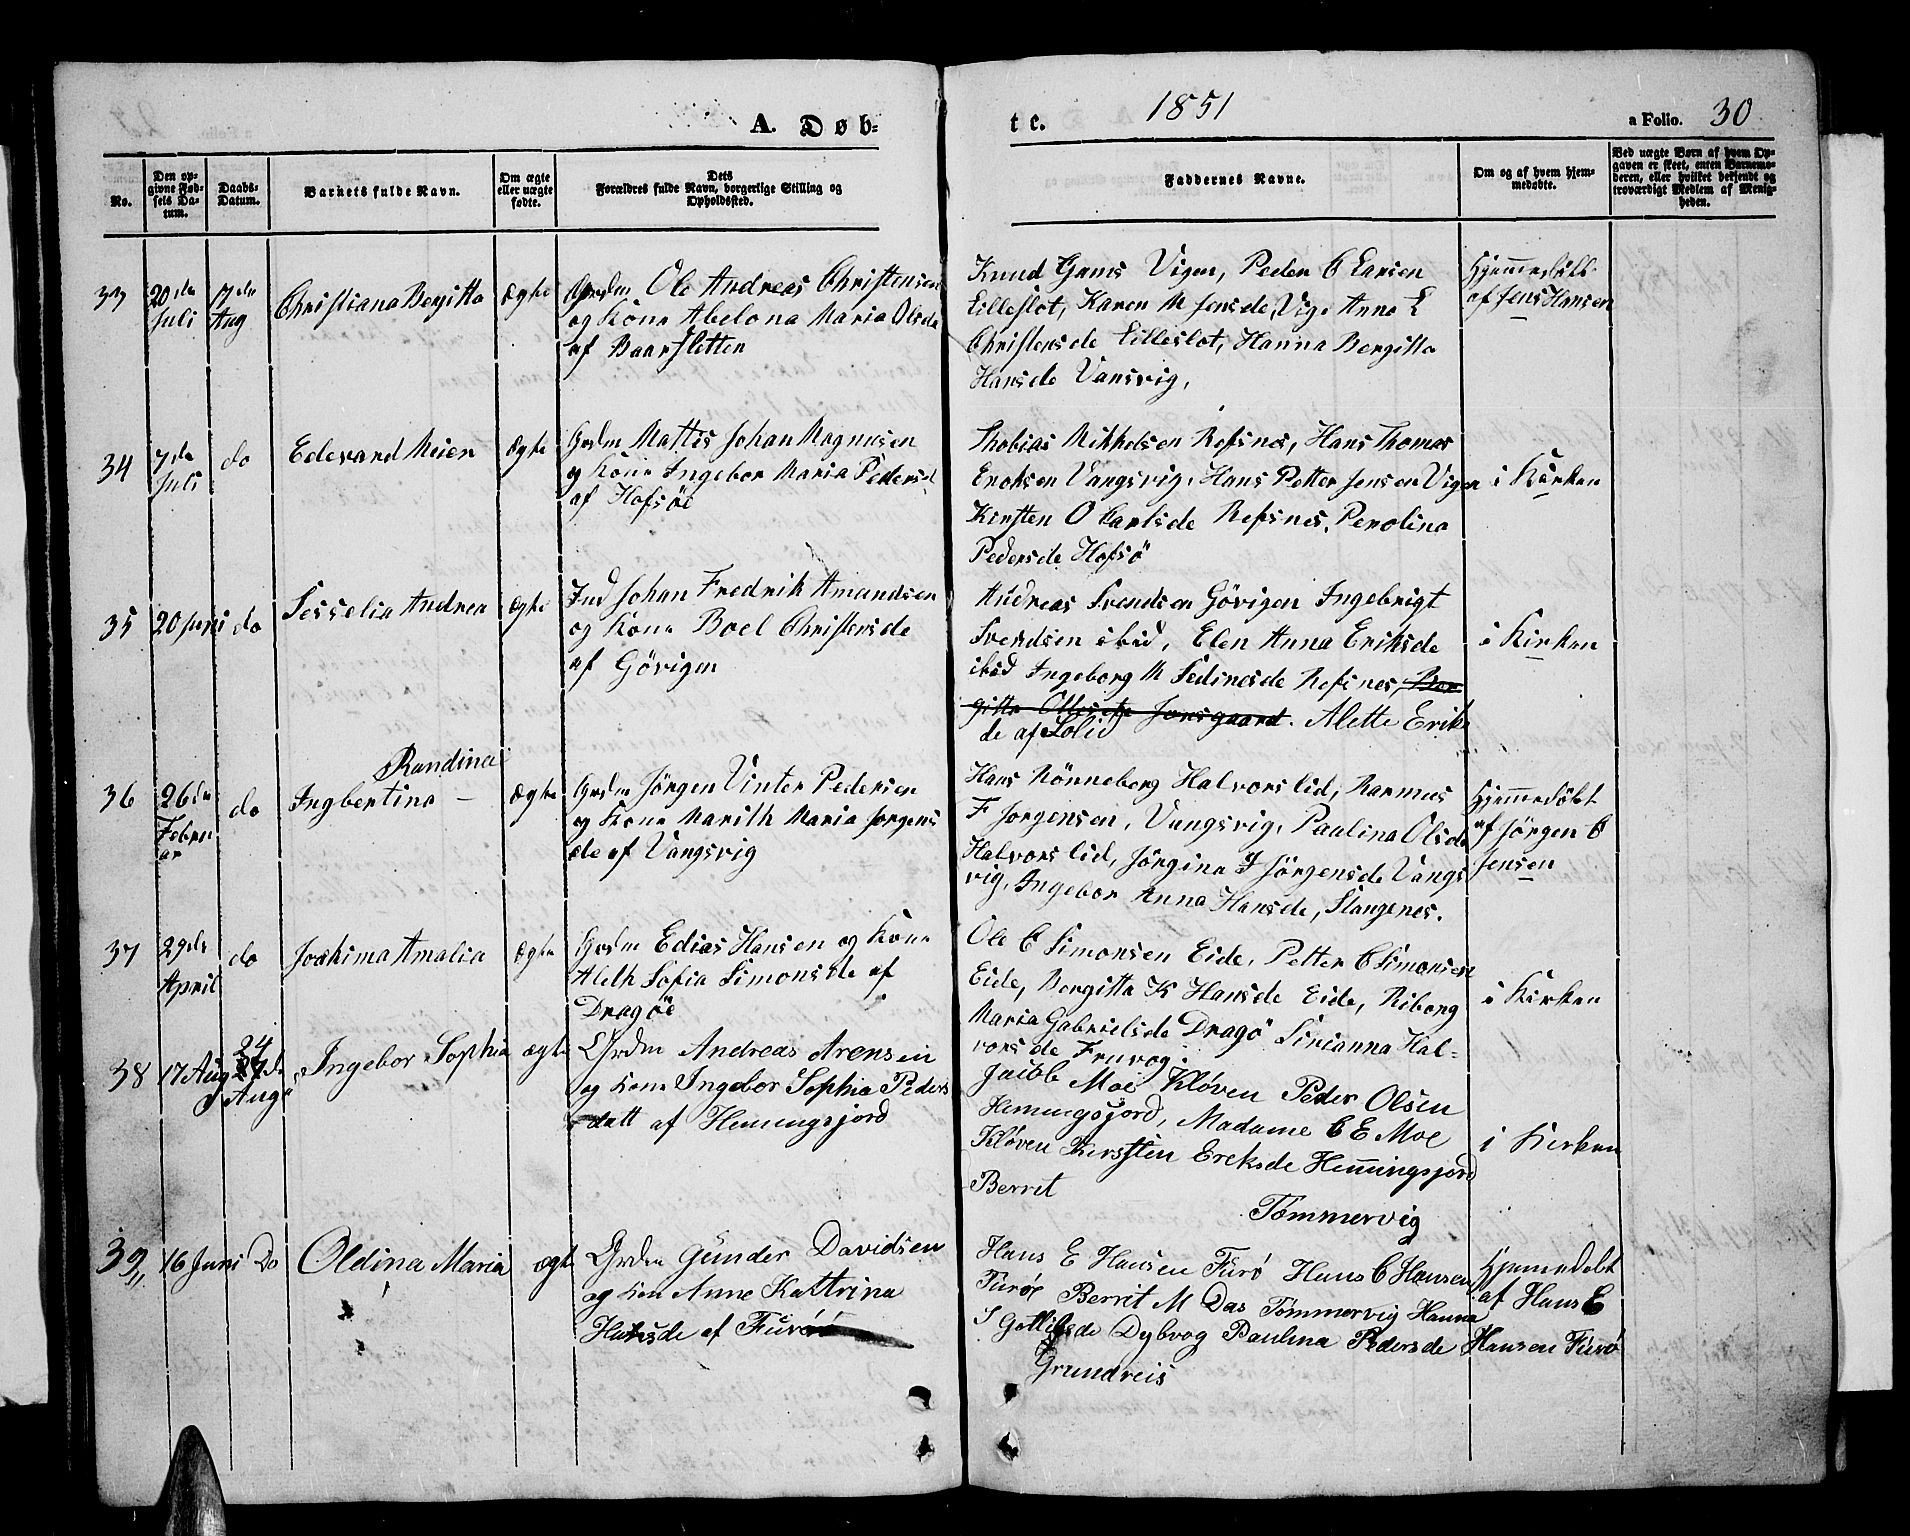 A. Døb-
te.
1851
a Folio. 30
No.
Den op-
givne Fød-
sels Da-
tum.
Daabs-
Datum.
Barnets fulde Navn.
Om ægte
eller uægte
fødte.
Dets
Forældres fulde Navn, borgerlige Stilling og
Opholdssted.
Faddernes Navne.
Om og af hvem hjem-
medøbte.
Ved uægte Børn af hvem Op-
gaven er skeet, enten Barnemo-
deren, eller hvilket bekjendt og
troværdigt Medlem af Menig-
heden.
33
20de
Juli
7de
Aug
Christiana Bergitta
Ægte
Grdm Ole Andreas Christensen
og Kone Abelona Maria Olsde
af Baarsletten
Knud Vigen, Peder C Larsen
Lilleslot, Karen M Jensde, Vig. Anne E
Christensde Lilleslot, Hanna Bergitta
Hansde Vansvig,
Hjemmedöbt
af Jens Hansen
34
7de
Juli
do
Edevard Meier
Ægte
Grdm Mattis Johan Magnusen
og Kone Ingebor Maria Pedersd
af Hofsöe
Thobias Mikkelsen Refsnes, Hans Thomas
Eroksen Vangsvig, Hans Petter Jensen Vigen
Kirsten O Carlsde Refsnes, Perolina
Pedersde Hofsö
i Kirken
35
20 Juni
do
Sesselia Andrea
Ægte
Ind Johan Fredrik Amundsen
og Kone Boel Christensde
af Gövigen
Andreas Svendsen Gövigen Ingebrigt
Svendsen ibid, Elen Anna Eriksde
ibid Ingeborg M Sedinesde Refsnes, Ber
gitta Jonsgaard. Alette Erik
de af Solid
i Kirken
36
26de
Febru
ar
do
Randina
Ingbertina –
Ægte
Grdm Jörgen Vinter Pedersen
og Kone Marith Maria Jorgens
de af Vangsvig
Hans Rönneberg Halvorslid, Rasmus
F Jorgensen, Vangsvig, Paulina Olsde
Halvorslid, Jörgina J Jörgensde Vangs
vig, Ingebor Anna Hansde, Stangenes.
Hjemmedöbt
af Jörgen C
Jensen
37
29de
April
do
Joakima Amalia
Ægte
Grdm Edias Hansen og Kone
Aleth Sofia Simonsde af
Dragöe
Ole C Simonsen Eide, Petter C Simonsen
Eide, Bergitta K Hansde Eide, Riborg
Maria Gabrielsde Dragö Sirianna Hal-
vorsde Fruvog.
i Kirken
38
17 Aug
24
Aug
Ingebor Sophia
ægte
Grdm Andreas Arensen
og Kone Ingebor Sophia Peders
datt af Hemingsjord
Jacob Moe Kløven Peder Olsen
Hemingsjord, Madame C E Moe
Kløven Kirsten Ereksde Hemmingsjord
Berret
Tømmervig
i Kirken
39
16 Juni
Do
Oldina Maria
ægte
Grdm Gunder Davidsen
og Kon Anne Kattrina
Hansde af Furöe
Hans E Hansen Furø Hans C Hansen
Furöe Berrit M Das Tømmervig Hanna
S Gotlibsde Dybvog Paulina Pedersde
Grundreis
Hjemmedøbt
af Hans E
Hansen Furø